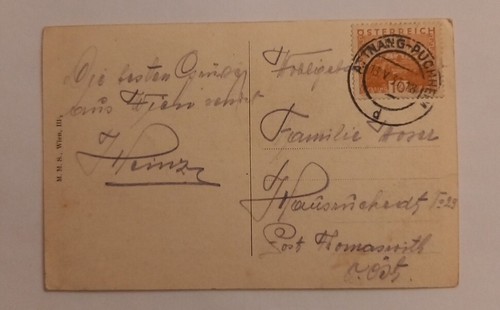 Die besten Grüße
aus Wien sendet
Heinz
M. H. R., Wien, III.
ÖSTERREICH
10
ATTNANG-PUCHHEIM
Familie Moser
Hausruckedt
Post Thomasroith
O. Öst.